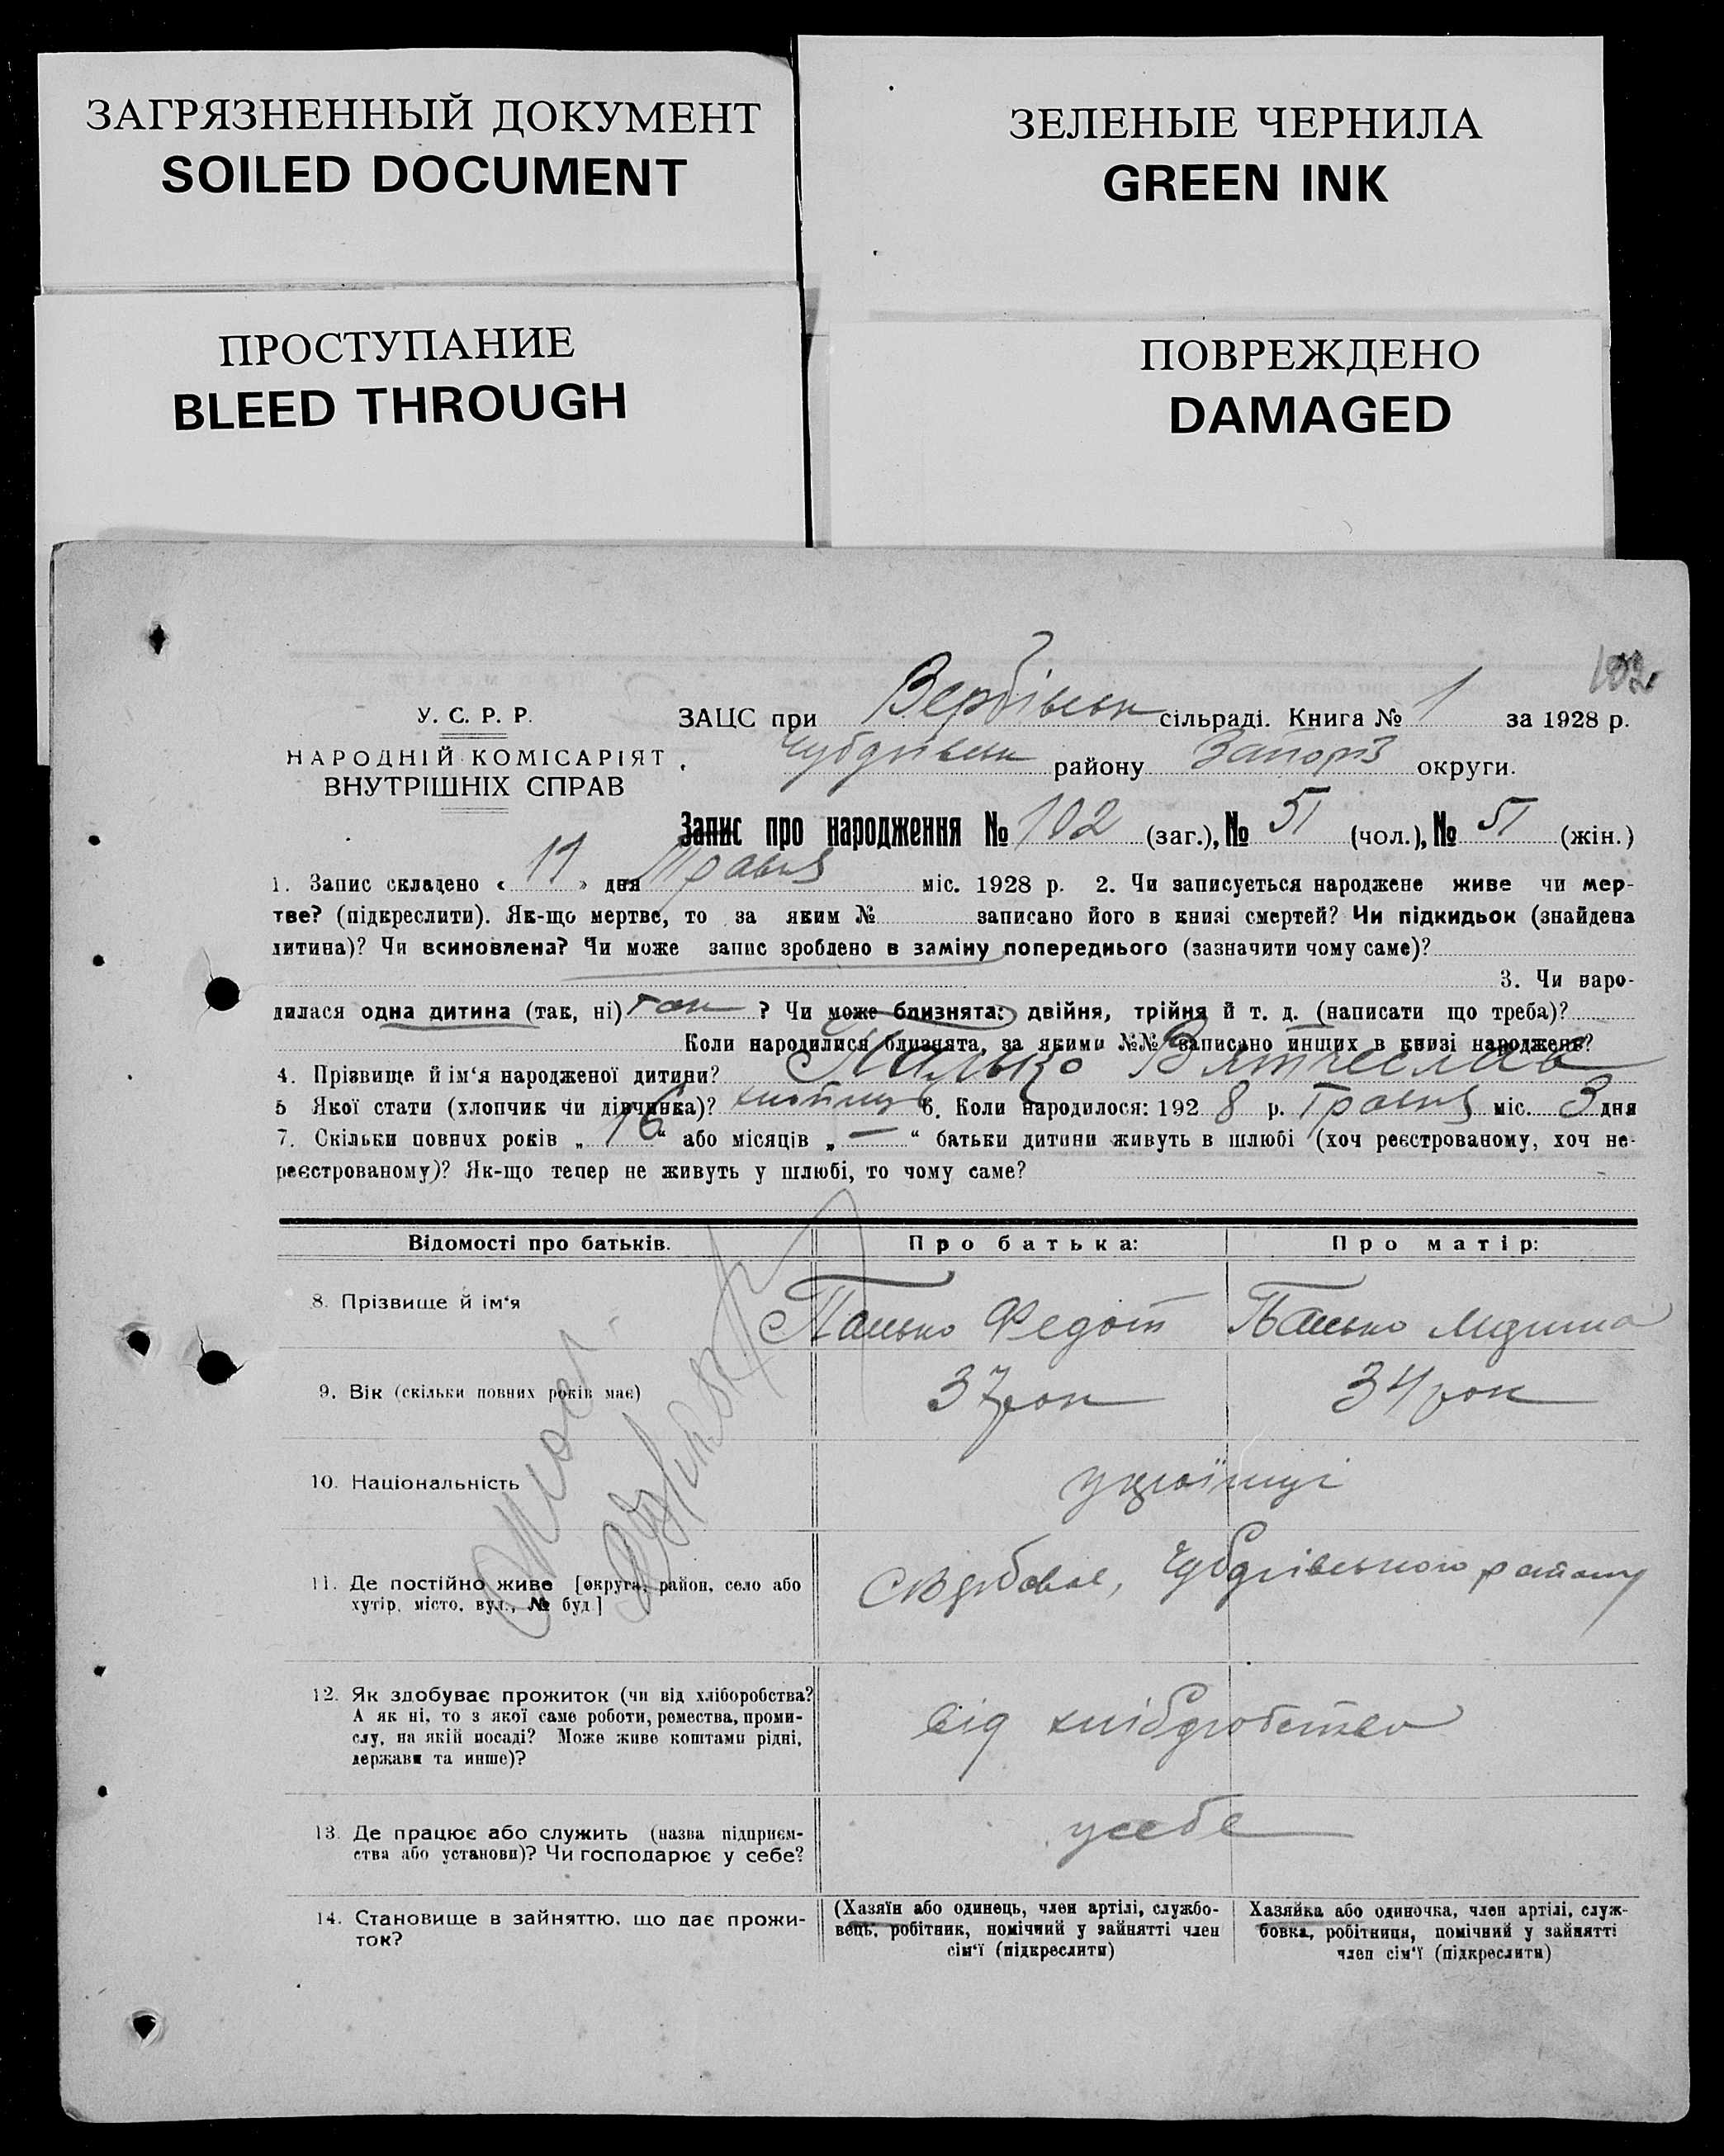 ЗАГРЯЗНЕННЫЙ ДОКУМЕНТ
SOILED DOCUMENT
ЗЕЛЕНЫЕ ЧЕРНИЛА
GREEN INK
ПРОСТУПАНИЕ
BLEED THROUGH
ПОВРЕЖДЕНО
DAMAGED
102
У. С. Р. Р.
НАРОДНІЙ КОМІСАРІЯТ
ВНУТРІШНІХ СПРАВ
ЗАЦС при Вербівськ сільраді. Книга № 1 за 1928 р.
району Запоріз округи.
Запис про народження № 102 (заг.), № 51 (чол.), № 51 (жін.)
1. Запис складено « 11 » дня Травня міс. 1928 р. 2. Чи записується народжене живе чи мер-
тве? (підкреслити). Як-що мертве, то за яким № записано його в книзі смертей? Чи підкидьок (знайдена
дитина)? Чи всиновлена? Чи може запис зроблено в заміну попереднього (зазначити чому саме)?
3. Чи наро-
дилася одна дитина (так, ні) так ? Чи може близнята: двійня, трійня й т. д. (написати що треба)?
Коли народилися близнята, за якими №№ записано инших в книзі народжень?
4. Прізвище й ім‘я народженої дитини? Палько Вятчеслав
5 Якої стати (хлопчик чи дівчинка)? хлопчик 6. Коли народилося: 192 8 р. Травня міс. 3 дня
7. Скільки повних років „ 16 “ або місяців „ — “ батьки дитини живуть в шлюбі (хоч реєстрованому, хоч не-
реєстрованому)? Як-що тепер не живуть у шлюбі, то чому саме?
Відомості про батьків. Про батька: Про матір:
8. Прізвище й ім‘я Палько Федот Палько
9. Вік (скільки повних років має) 37 рок 34 рок
10. Національність українці
11. Де постійно живе [округа, район, село або
хутір, місто, вул., № буд] району
12. Як здобуває прожиток (чи від хліборобства?
А як ні, то з якої саме роботи, ремества, проми-
слу, на якій посаді? Може живе коштами рідні,
держави та инше)? від хліборобства
13. Де працює або служить (назва підприєм-
ства або установи)? Чи господарює у себе? у себе
14. Становище в зайняттю, що дає прожи-
ток?
(Хазяїн або одинець, член артілі, службо-
вець, робітник, помічний у зайнятті член
сім‘ї (підкреслити)
Хазяйка або одиночка, член артілі, служ-
бовка, робітниця, помічний у зайнятті
член сім‘ї (підкреслити)